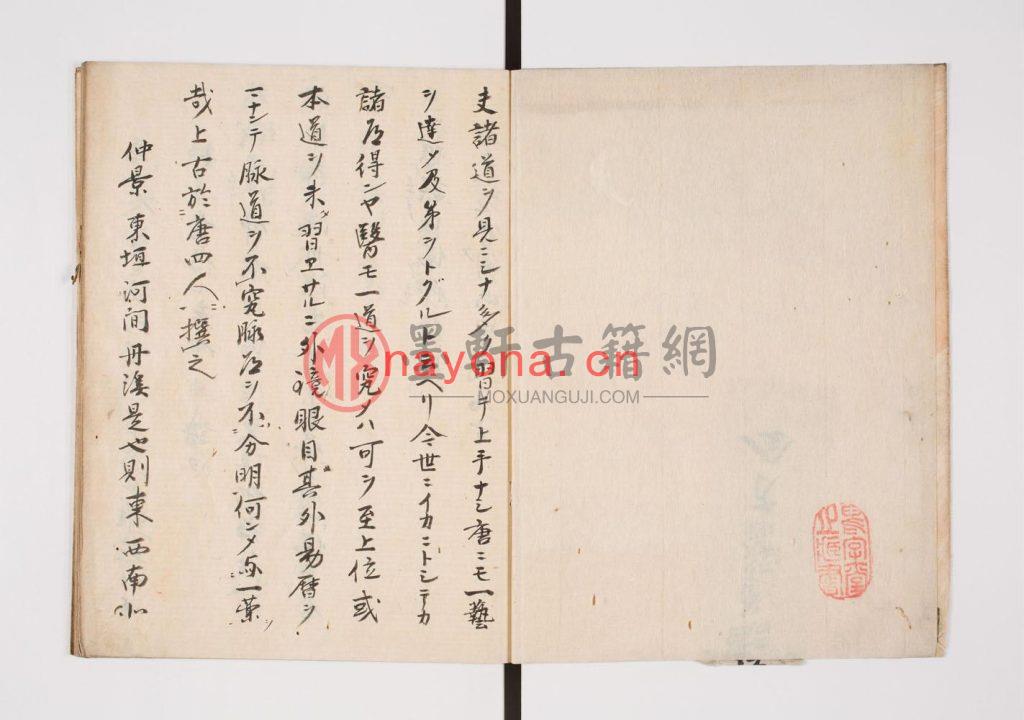 夫諸道ヲ見ニミナ習テ上手ナシ唐ニモ一藝
ヲ達メ及第シトグルト云ヘリ今世ニイカニトシテカ
諸道得ニヤ醫モ一道ヲ究メハ可シ至上位或
本道ヲ未習ワサルニ外境眼目其外易暦ヲ
テ脉道ヲ不究脉道ヲ不分明何シメ与一藥
哉上古於唐四人撰之
仲景東垣河间丹溪是也則東西南北
MX
墨軒古籍網
nayona.cn
MOXUANGUJI.COM